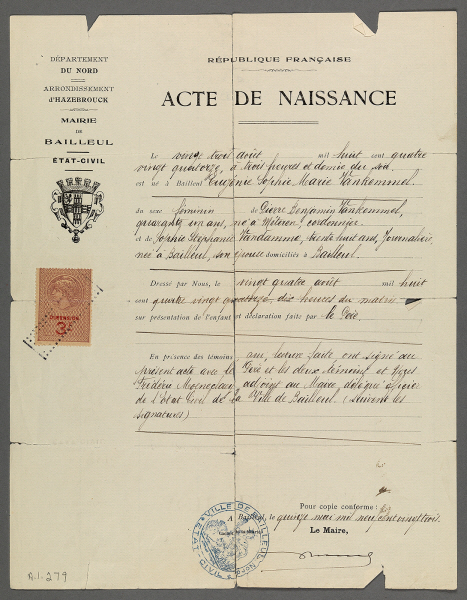 DÉPARTEMENT
DU NORD
ARRONDISSEMENT
d'HAZEBROUCK
MAIRIE
DE
BAILLEUL
ÉTAT-CIVIL
RÉPUBLIQUE FRANÇAISE
ACTE DE NAISSANCE
Le vingt trois août mil huit cent quatre
vingt quatorze, à trois heures et demie du soir
est né à Bailleul Eugénie Sophie Marie Vankemmel.
du sexe féminin de Pierre Benjamin Vankemmel,
quarante un ans, né à Méteren, cordonnier
et de Sophie Stéphanie Vandamme, trente huit ans, Journalière,
née à Bailleul, son épouse domiciliés à Bailleul.
Dressé par Nous, le vingt quatre août mil huit
cent quatre vingt quatorze, dix heures du matin
sur présentation de l'enfant et déclaration faite par le Père.
En présence des témoins qui, lecture faite, ont signé au
présent acte avec le Père et les deux témoins et Nous
Frédéric adjoint au Maire, délégué officier
de l'état Civil de la Ville de Bailleul. (Suivent les
signatures)
DIMENSION
3F
Pour copie conforme :
A Bailleul, le quinze mai mil neuf cent vingt trois.
Le Maire,
VILLE DE BAILLEUL
ÉTAT-CIVIL
A.1.279